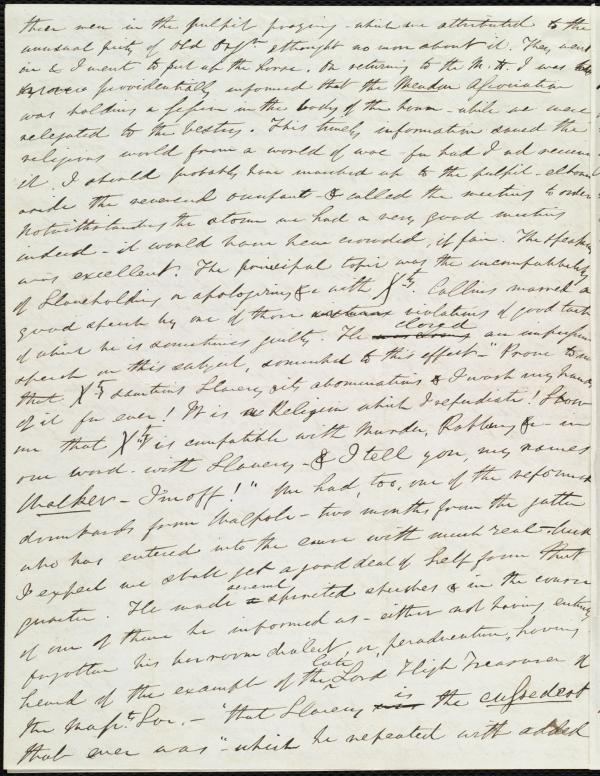 three men in the pulpit praying - which we attributed to the
unusual piety of Old Orgn & thought no more about it. They went
in & I went to put up the horse. On returning to the M. H. I was
providentially informed that the Mendon Association
was holding a session in the body of the house - while we were
relegated to the vestry. This timely information saved the
religious world from a world of woe for had I not received
it, I should probably have marched up to the pulpit - elbowed
aside the reverend occupant - & called the meeting to order
Notwithstanding the storm we had a very good meeting
indeed - it would have been crowded, if fair. The speaking
was excellent. The principal topic was the incompatibility
of Slaveholding or apologizing &c with Xty. Collins marred a
good speech by one of those violations of good taste
of which he is sometimes guilty. He closed an impassioned
speech on this subject, somewhat to this effect - "Prove to me
that Xty sanctions Slavery & its abominations & I wash my hands
of it for ever! It is a Religion which I repudiate! Show
me that Xty is compatible with Murder, Robbery &c - in
one word - with Slavery - & I tell you, my name's
Walker - I'm off!" We had, too, one of the reformed
drunkards from Walpole - two months from the gutter
who has entered into the cause with much real - &
I expect we shall get a good deal of help from that
quarter. He made several spirited speeches & in the course
of one of them he informed us - either not having entirely
forgotten his bar room dialect, or, peradventure, having
heard of the example of the late Lord High Treasurer of
the Masstts Soc. - "that Slavery is the cussedest
that ever was" - which he repeated with added